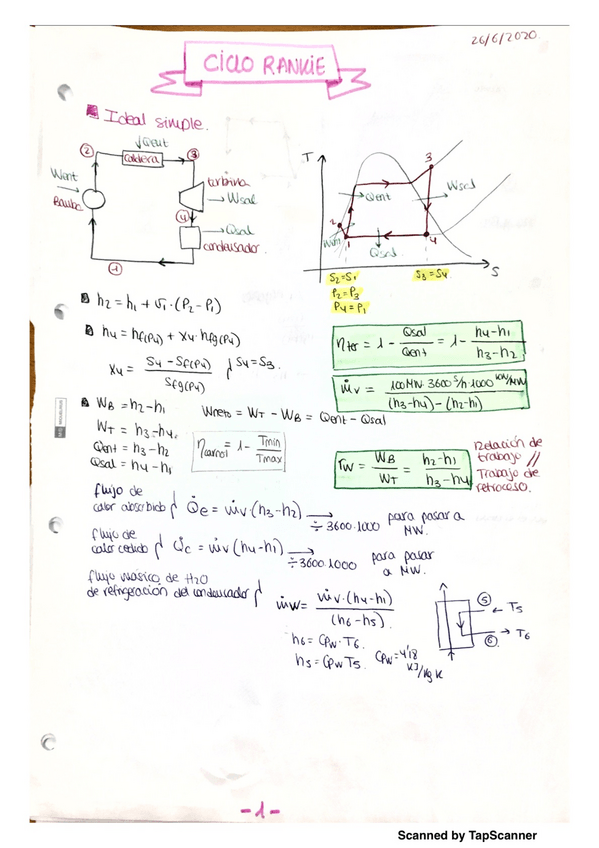 26/6/2020.
CICLO RANKIE
Ideal simple.
↓Qent
② caldera ③
Went
→
Bomba
turbina
→ Wsal
④
→ Qsal
condensador.
①
T
3
Qent
Wsal
2
Went
1
4
Qsal
S
S2=S1
P2=P3
P4=P1
S3=S4
h2 = h1 + v1·(P2-P1)
h4 = hf(P4) + x4·hfg(P4)
x4 = (S4 - Sf(P4)) / Sfg(P4) } S4=S3.
ηter = 1 - Qsal/Qent = 1 - (h4-h1)/(h3-h2)
ṁv = (100MW·3600 s/h·1000 kW/MW) / ((h3-h4)-(h2-h1))
WB = h2-h1
WT = h3-h4.
Qent = h3-h2
Qsal = h4-h1
Wneto = WT - WB = Qent - Qsal
ηcarnot = 1 - Tmin/Tmax
rw = WB/WT = (h2-h1)/(h3-h4)
Relación de
trabajo //
Trabajo de
retroceso.
flujo de
calor absorbido } Q̇e = ṁv·(h3-h2) → ÷3600·1000 para pasar a
MW.
flujo de
calor cedido } Q̇c = ṁv(h4-h1) → ÷3600·1000 para pasar
a MW.
flujo másico de H2O
de refrigeración del condensador } ṁw = ṁv·(h4-h1) / (h6-h5).
⑤ ← T5
⑥ → T6
h6 = Cpw·T6.
h5 = Cpw T5. Cpw=4'18 KJ/Kg K
-1-
Scanned by TapScanner